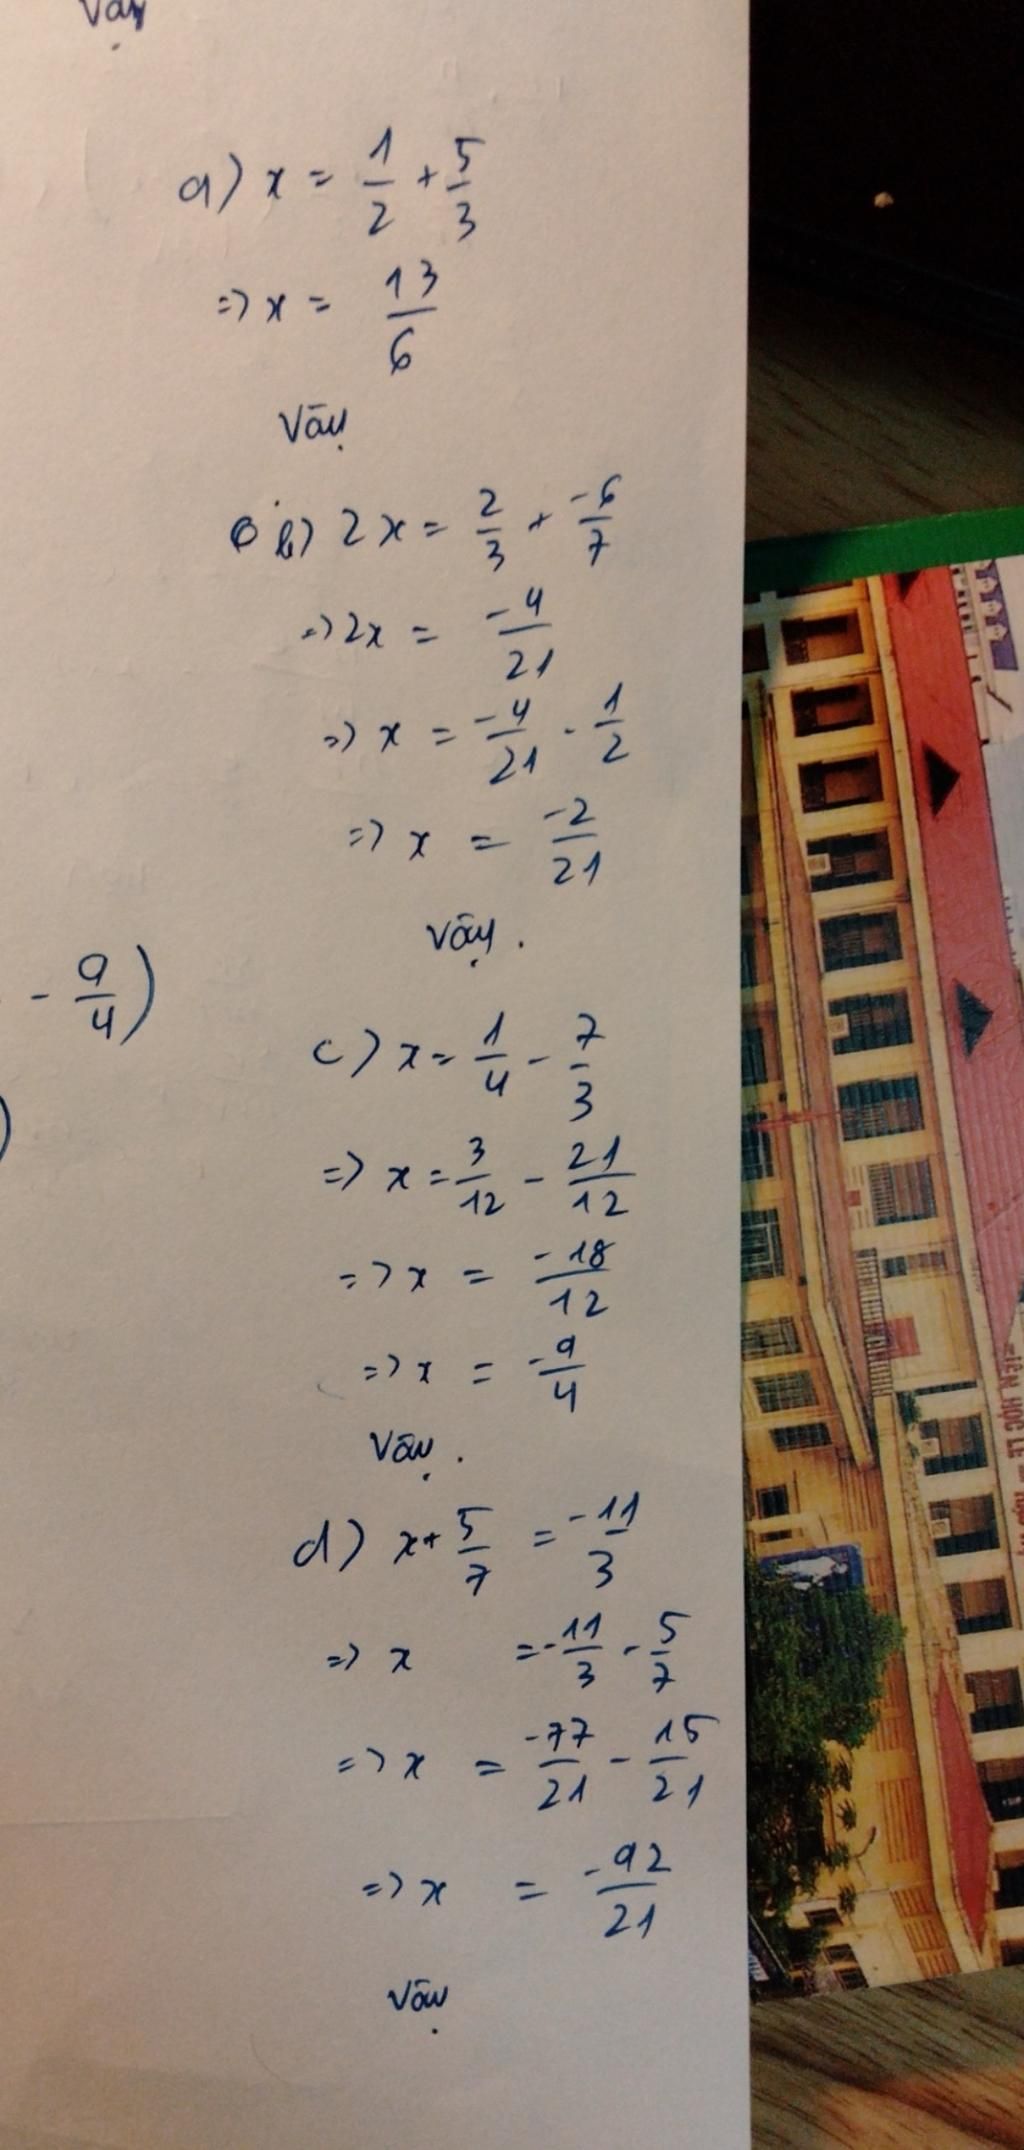 Vậy
a) x = 1/2 + 5/3
=> x = 13/6
Vậy
b) 2x = 2/3 + -6/7
=> 2x = -4/21
=> x = -4/21 . 1/2
=> x = -2/21
Vậy.
- 9/4)
)
c) x = 1/4 - 7/3
=> x = 3/12 - 21/12
=> x = -18/12
=> x = -9/4
Vậy.
d) x + 5/7 = -11/3
=> x = -11/3 - 5/7
=> x = -77/21 - 15/21
=> x = -92/21
Vậy